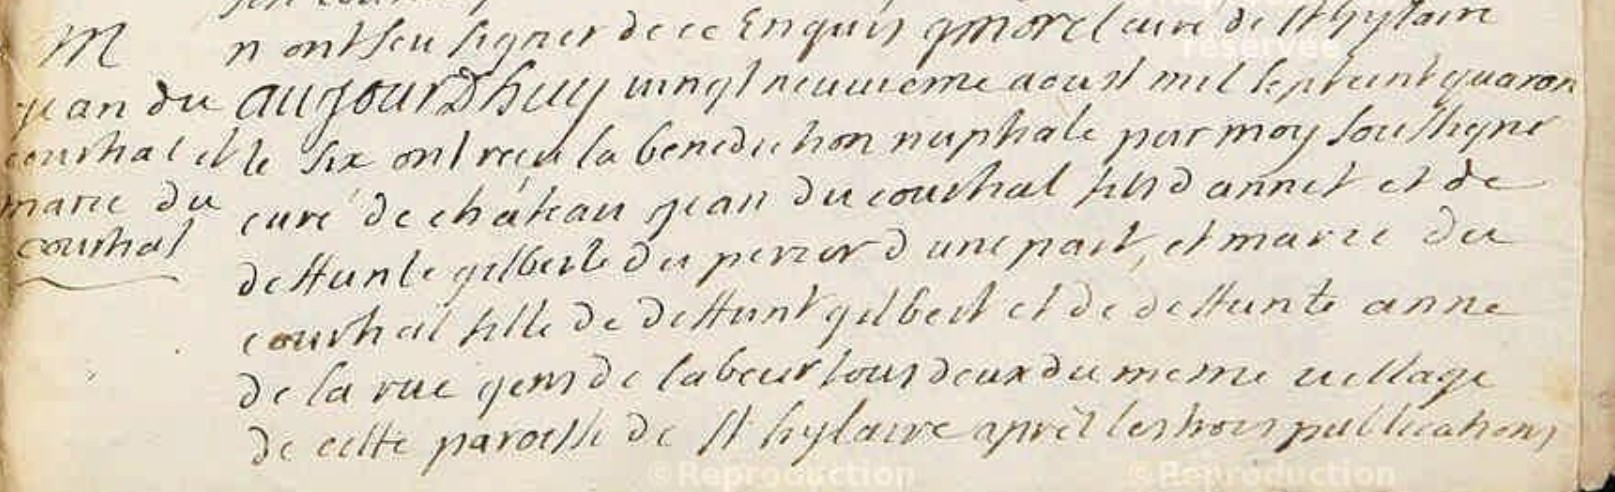 M
jean du
courtial et
marie du
courtial
n ont seu signer de ce Enquis curé de st hylaire
aujourdhuy vingt neuvieme aoust mil sept cent quaran
te six ont reçu la benediction nuptiale par moy soussigné
curé de château jean du courtial fils d annet et de
deffunte gilberte du perier d une part, et marie du
courtial fille de deffunt gilbert et de deffunte anne
de la rue gens de labeur tous deux du meme village
de cette paroisse de st hylaire aprèt les trois publications
©Reproduction
©Reproduction